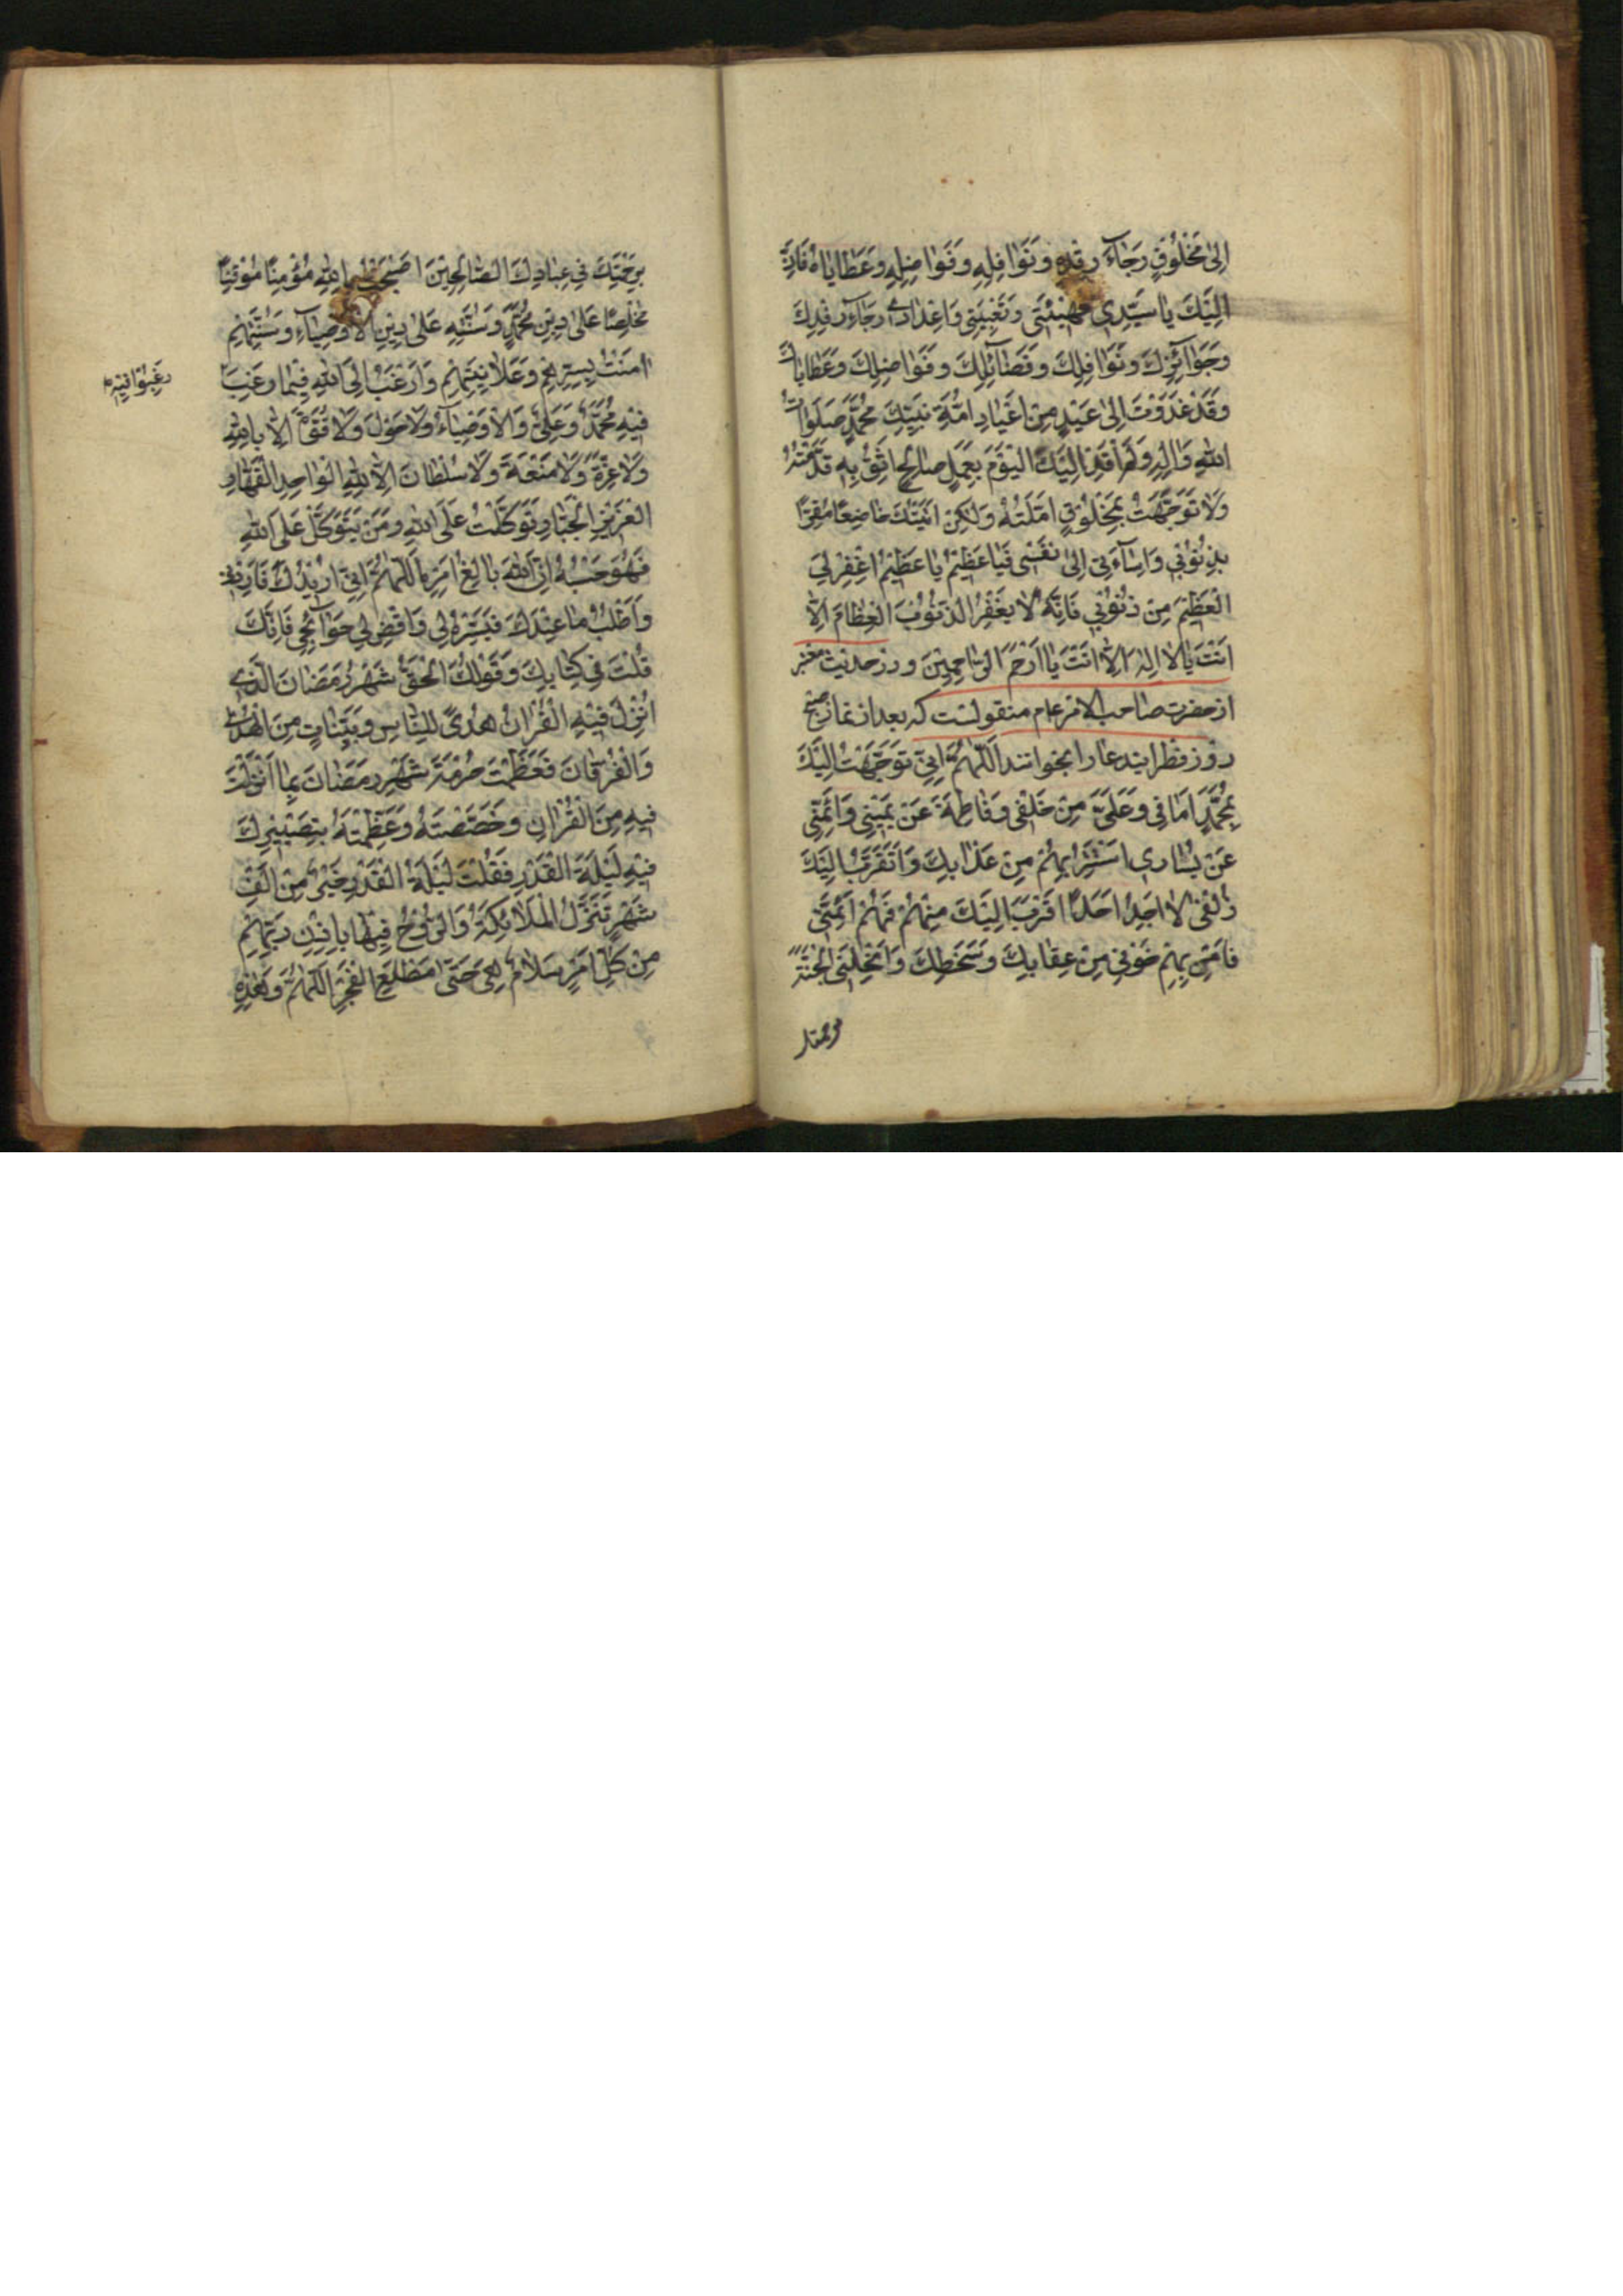 اِلىٰ مَخْلُوقٍ رَجَاءَ رِفْدِهِ وَنَوَافِلِهِ وَفَوَاضِلِهِ وَعَطَايَاهُ فَاِنَّ
اِلَيْكَ يَا سَيِّدِي تَهْيِئَتِي وَتَعْبِيَتِي وَاِعْدَادِي رَجَاءَ رِفْدِكَ
وَجَوَآئِزِكَ وَنَوَافِلِكَ وَفَضَآئِلِكَ وَفَوَاضِلِكَ وَعَطَايَاكَ
وَقَدْ غَدَوْتُ اِلىٰ عِيْدٍ مِنْ اَعْيَادِ اُمَّةِ نَبِيِّكَ مُحَمَّدٍ صَلَوَاتُ
اللّٰهِ وَاٰلِهِ وَلَمْ اَفِدْ اِلَيْكَ الْيَوْمَ بِعَمَلٍ صَالِحٍ اَثِقُ بِهِ قَدَّمْتُهُ
وَلَا تَوَجَّهْتُ بِمَخْلُوْقٍ اَمَّلْتُهُ وَلٰكِنْ اَتَيْتُكَ خَاضِعًا مُقِرًّا
بِذُنُوْبِي وَاِسَآءَتِي اِلىٰ نَفْسِي فَيَا عَظِيْمُ يَا عَظِيْمُ اغْفِرْ لِيَ
الْعَظِيْمَ مِنْ ذُنُوْبِي فَاِنَّهُ لَا يَغْفِرُ الذُّنُوْبَ الْعِظَامَ اِلَّا
اَنْتَ يَا لَا اِلٰهَ اِلَّا اَنْتَ يَا اَرْحَمَ الرَّاحِمِيْنَ و در حدیث معتبر
از حضرت صاحب الامر عام منقولست که بعد از نماز صبح
روز فطر ایندعا را بخوانند اَللّٰهُمَّ اِنِّي تَوَجَّهْتُ اِلَيْكَ
بِمُحَمَّدٍ اَمَامِي وَعَلِيٍّ مِنْ خَلْفِي وَفَاطِمَةَ عَنْ يَمِيْنِي وَاَئِمَّتِي
عَنْ يَسَارِي اَسْتَتِرُ بِهِمْ مِنْ عَذَابِكَ وَاَتَقَرَّبُ اِلَيْكَ
زُلْفىٰ لَا اَجِدُ اَحَدًا اَقْرَبَ اِلَيْكَ مِنْهُمْ فَهُمْ اَئِمَّتِي
فَاٰمِنْ بِهِمْ خَوْفِي مِنْ عِقَابِكَ وَسَخَطِكَ وَاَدْخِلْنِي الْجَنَّةَ
برحمتك
بِرَحْمَتِكَ فِي عِبَادِكَ الصَّالِحِيْنَ اَصْبَحْتُ بِاللّٰهِ مُؤْمِنًا مُوْقِنًا
مُخْلِصًا عَلىٰ دِيْنِ مُحَمَّدٍ وَسُنَّتِهِ وَعَلىٰ دِيْنِ الْاَوْصِيَآءِ وَسُنَّتِهِمْ
اٰمَنْتُ بِسِرِّهِمْ وَعَلَانِيَتِهِمْ وَاَرْغَبُ اِلَى اللّٰهِ فِيْمَا رَغِبَ
رَغِبُوْا فِيْهِ
فِيْهِ مُحَمَّدٌ وَعَلِيٌّ وَالْاَوْصِيَآءُ وَلَا حَوْلَ وَلَا قُوَّةَ اِلَّا بِاللّٰهِ
وَلَا عِزَّةَ وَلَا مَنْعَةَ وَلَا سُلْطَانَ اِلَّا لِلّٰهِ الْوَاحِدِ الْقَهَّارِ
الْعَزِيْزِ الْجَبَّارِ تَوَكَّلْتُ عَلَى اللّٰهِ وَمَنْ يَتَوَكَّلْ عَلَى اللّٰهِ
فَهُوَ حَسْبُهُ اِنَّ اللّٰهَ بَالِغُ اَمْرِهِ اَللّٰهُمَّ اِنِّي اُرِيْدُكَ فَاَرِدْنِي
وَاَطْلُبُ مَا عِنْدَكَ فَيَسِّرْهُ لِي وَاقْضِ لِي حَوَآئِجِي فَاِنَّكَ
قُلْتَ فِي كِتَابِكَ وَقَوْلُكَ الْحَقُّ شَهْرُ رَمَضَانَ الَّذِي
اُنْزِلَ فِيْهِ الْقُرْاٰنُ هُدًى لِلنَّاسِ وَبَيِّنَاتٍ مِنَ الْهُدىٰ
وَالْفُرْقَانِ فَعَظَّمْتَ حُرْمَةَ شَهْرِ رَمَضَانَ بِمَا اَنْزَلْتَ
فِيْهِ مِنَ الْقُرْاٰنِ وَخَصَّصْتَهُ وَعَظَّمْتَهُ بِتَصْيِيْرِكَ
فِيْهِ لَيْلَةَ الْقَدْرِ فَقُلْتَ لَيْلَةُ الْقَدْرِ خَيْرٌ مِنْ اَلْفِ
شَهْرٍ تَنَزَّلُ الْمَلَائِكَةُ وَالرُّوْحُ فِيْهَا بِاِذْنِ رَبِّهِمْ
مِنْ كُلِّ اَمْرٍ سَلَامٌ هِيَ حَتّىٰ مَطْلَعِ الْفَجْرِ اَللّٰهُمَّ وَهٰذِهِ